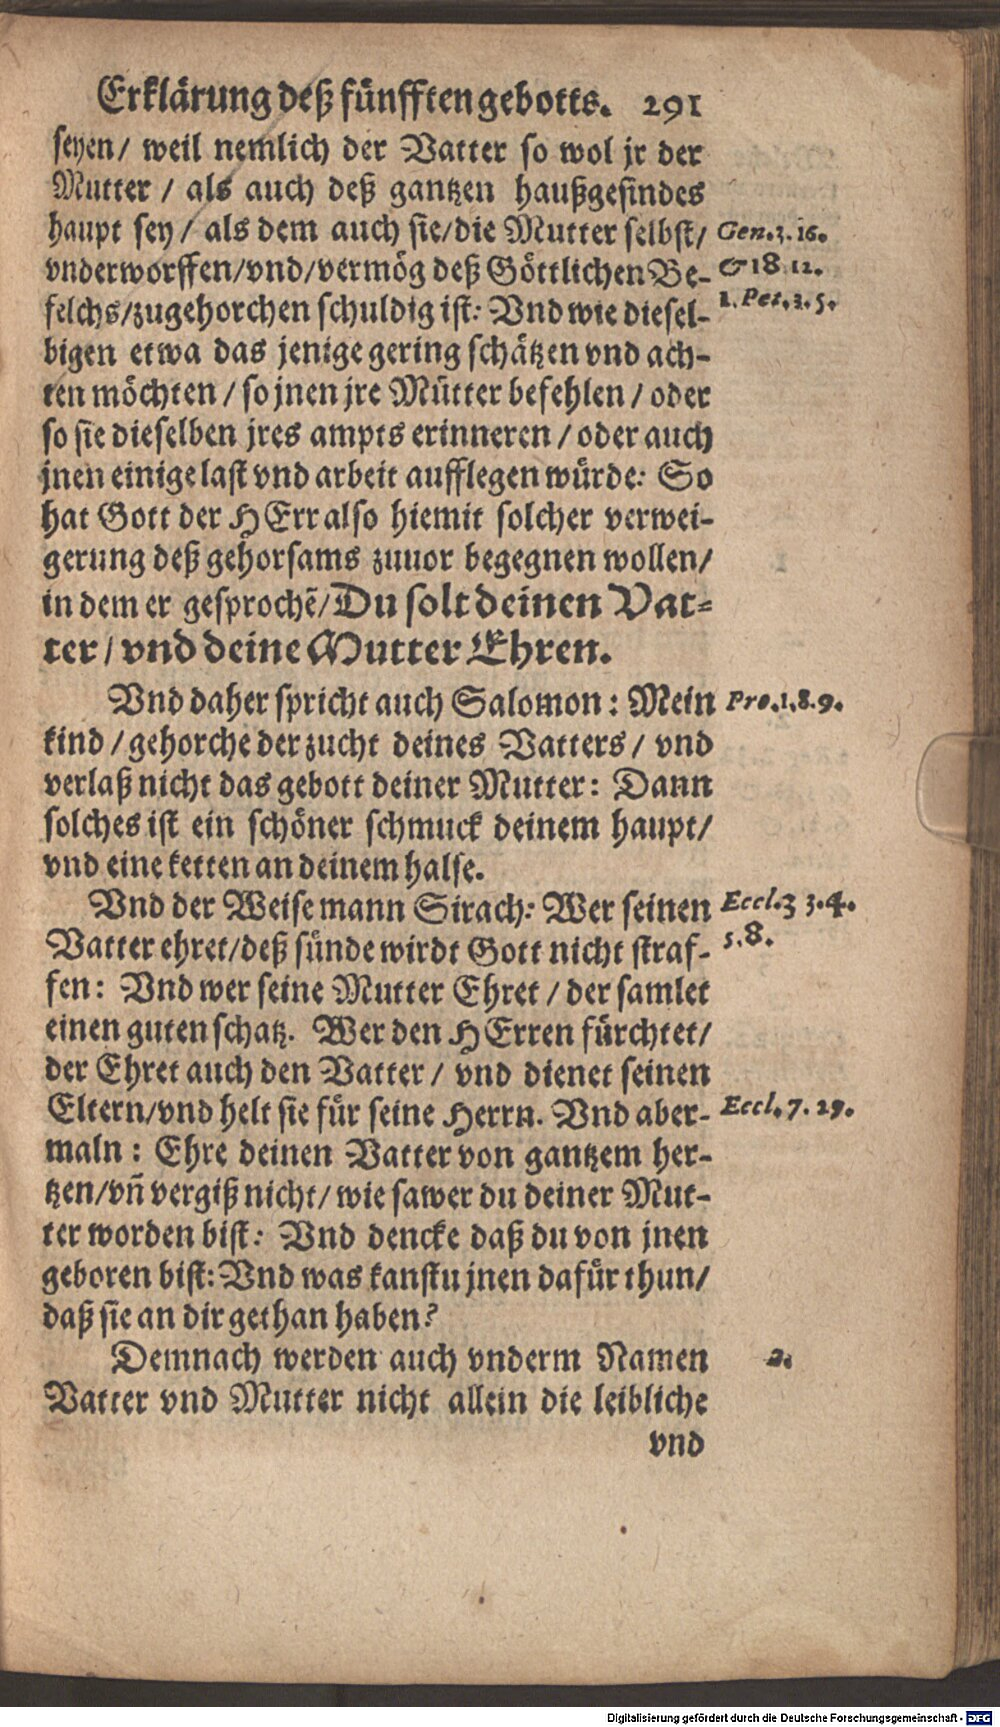 Erklärung deß fünfften gebotts. 291
seyen/ weil nemlich der Vatter so wol jr der
Mutter / als auch deß gantzen haußgesindes
haupt sey / als dem auch sie/die Mutter selbst/
Gen.3.16.
vnderworffen/vnd/vermög deß Göttlichen Be-
& 18 12.
felchs/zugehorchen schuldig ist: Vnd wie diesel-
1. Pet.3.5.
bigen etwa das jenige gering schätzen vnd ach-
ten möchten / so jnen jre Mütter befehlen / oder
so sie dieselben jres ampts erinneren / oder auch
jnen einige last vnd arbeit aufflegen würde: So
hat Gott der HErr also hiemit solcher verwei-
gerung deß gehorsams zuuor begegnen wollen/
in dem er gesprochē/Du solt deinen Vat-
ter / vnd deine Mutter Ehren.
Vnd daher spricht auch Salomon : Mein
Pro.1.8.9.
kind / gehorche der zucht deines Vatters / vnd
verlaß nicht das gebott deiner Mutter: Dann
solches ist ein schöner schmuck deinem haupt/
vnd eine ketten an deinem halse.
Vnd der Weise mann Sirach: Wer seinen
Eccl.3 3.4.
Vatter ehret/deß sünde wirdt Gott nicht straf-
5.8.
fen: Vnd wer seine Mutter Ehret / der samlet
einen guten schatz. Wer den HErren fürchtet/
der Ehret auch den Vatter / vnd dienet seinen
Eltern/vnd helt sie für seine Herrn. Vnd aber-
Eccl.7.29.
maln : Ehre deinen Vatter von gantzem her-
tzen/vñ vergiß nicht/ wie sawer du deiner Mut-
ter worden bist: Vnd dencke daß du von jnen
geboren bist: Vnd was kanstu jnen dafür thun/
daß sie an dir gethan haben?
Demnach werden auch vnderm Namen
2.
Vatter vnd Mutter nicht allein die leibliche
vnd
Digitalisierung gefördert durch die Deutsche Forschungsgemeinschaft - DFG